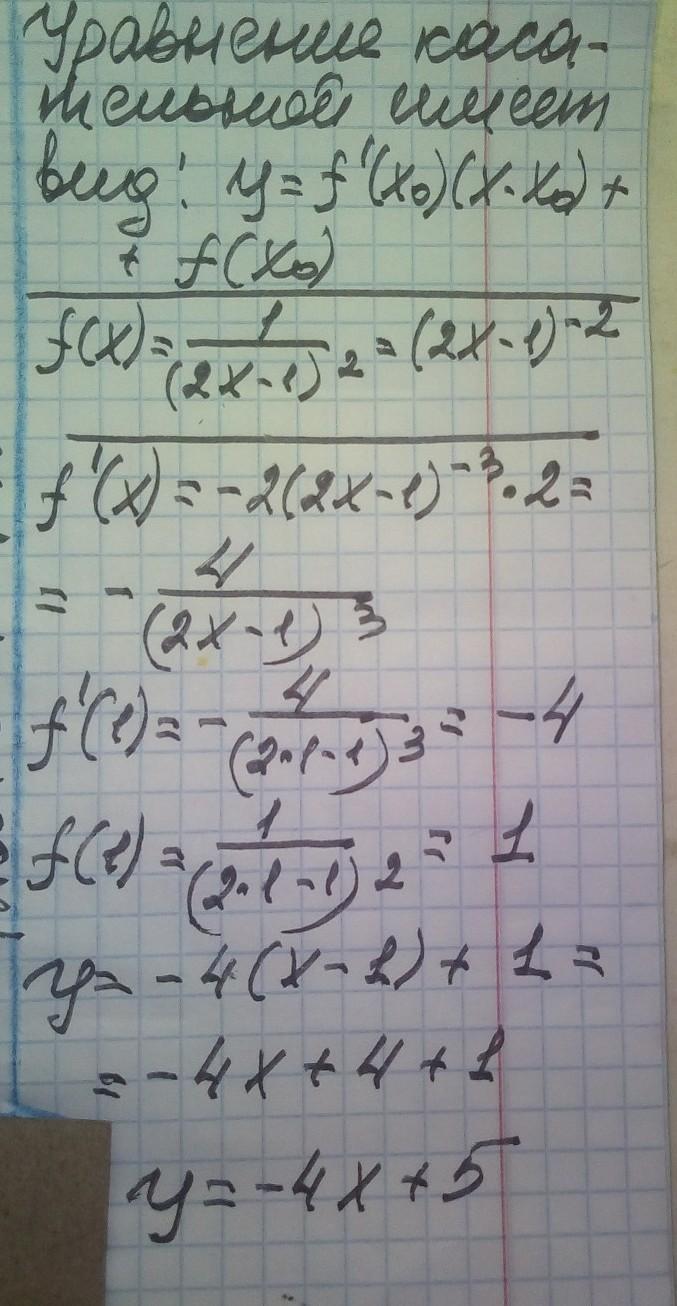 Уравнение каса-
тельной имеет
вид: y = f'(x₀)(x - x₀) +
+ f(x₀)
f(x) = 1/(2x - 1)² = (2x - 1)⁻²
f'(x) = -2(2x - 1)⁻³ · 2 =
= - 4/(2x - 1)³
f'(1) = - 4/(2·1 - 1)³ = -4
f(1) = 1/(2·1 - 1)² = 1
y = -4(x - 1) + 1 =
= -4x + 4 + 1
y = -4x + 5